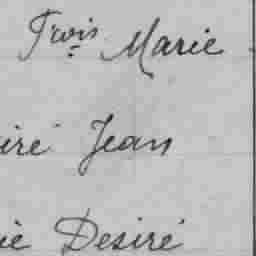 Frois Marie
iré Jean
ie Desiré